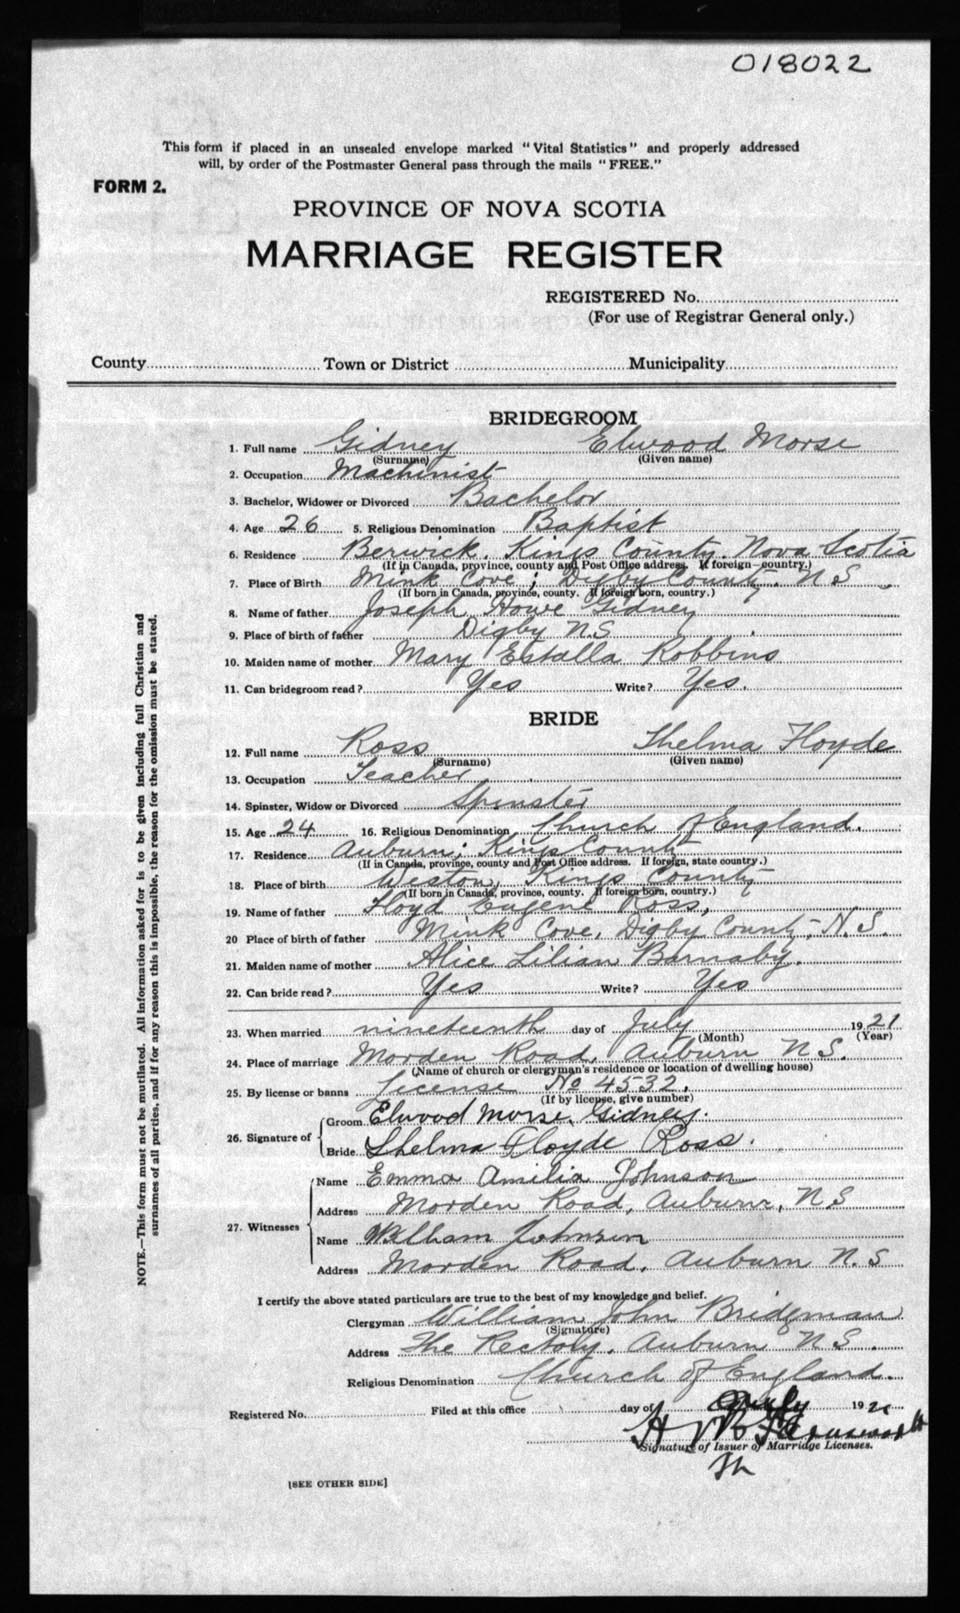 018022
This form if placed in an unsealed envelope marked "Vital Statistics" and properly addressed
will, by order of the Postmaster General pass through the mails "FREE."
FORM 2.
PROVINCE OF NOVA SCOTIA
MARRIAGE REGISTER
REGISTERED No.
(For use of Registrar General only.)
County Town or District Municipality
BRIDEGROOM
1. Full name Gidney Elwood Morse
(Surname) (Given name)
2. Occupation Machinist
3. Bachelor, Widower or Divorced Bachelor
4. Age 26 5. Religious Denomination Baptist
6. Residence Berwick, Kings County, Nova Scotia
(If in Canada, province, county and Post Office address. If foreign country.)
7. Place of Birth Mink Cove; Digby County. N S
(If born in Canada, province, county. If foreign born, country.)
8. Name of father Joseph Howe Gidney
9. Place of birth of father Digby N.S
10. Maiden name of mother Mary Estalla Robbins
11. Can bridegroom read? Yes Write? Yes.
BRIDE
12. Full name Ross Thelma Floyde
(Surname) (Given name)
13. Occupation Teacher
14. Spinster, Widow or Divorced Spinster
15. Age 24 16. Religious Denomination Church of England.
17. Residence Auburn; Kings County
(If in Canada, province, county and Post Office address. If foreign, state country.)
18. Place of birth Weston, Kings County
(If born in Canada, province, county. If foreign born, country.)
19. Name of father Floyd Eugene Ross,
20 Place of birth of father Mink Cove, Digby County, N.S.
21. Maiden name of mother Alice Lilian Barnaby.
22. Can bride read? Yes Write? Yes
23. When married nineteenth day of July 1921
(Month) (Year)
24. Place of marriage Morden Road, Auburn N S.
(Name of church or clergyman's residence or location of dwelling house)
25. By license or banns License No 4532.
(If by license, give number)
26. Signature of Groom Elwood Morse Gidney.
Bride Thelma Floyde Ross.
27. Witnesses Name Emma Amilia Johnson
Address Morden Road, Auburn, N S
Name William Johnson
Address Morden Road, Auburn N. S
I certify the above stated particulars are true to the best of my knowledge and belief.
Clergyman William John Bridgman
(Signature)
Address The Rectory, Auburn N S.
Religious Denomination Church of England.
Registered No. Filed at this office day of July 192
Signature of Issuer of Marriage Licenses.
[SEE OTHER SIDE]
NOTE.—This form must not be mutilated. All information asked for is to be given including full Christian and
surnames of all parties, and if for any reason this is impossible, the reason for the omission must be stated.